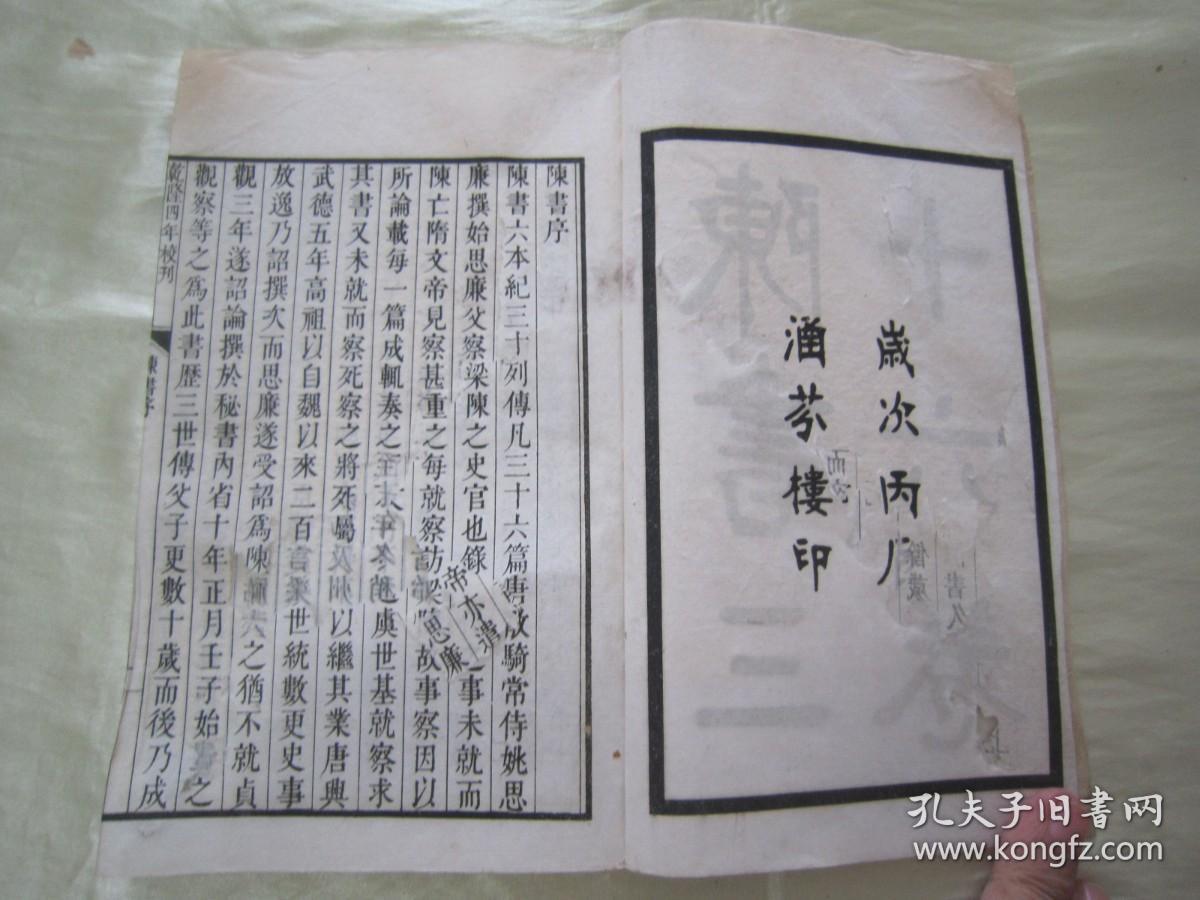 歲次丙
涵芬樓印
陳書序
陳書六本紀三十列傳凡三十六篇唐散騎常侍姚思
廉撰始思廉父察梁陳之史官也錄事未就而
陳亡隋文帝見察甚重之每就察訪梁故事察因以
所論載每一篇成輒奏之至虞世基就察求
其書又未就而察死察之將死屬以繼其業唐興
武德五年高祖以自魏以來二百世統數更史事
放逸乃詔撰次而思廉遂受詔爲陳之猶不就貞
觀三年遂詔論撰於秘書內省十年正月壬子始之
觀察等之爲此書歷三世傳父子更數十歲而後乃成
乾隆四年校刊
陳書序
帝亦遣
思廉
孔夫子旧书网
www.kongfz.com